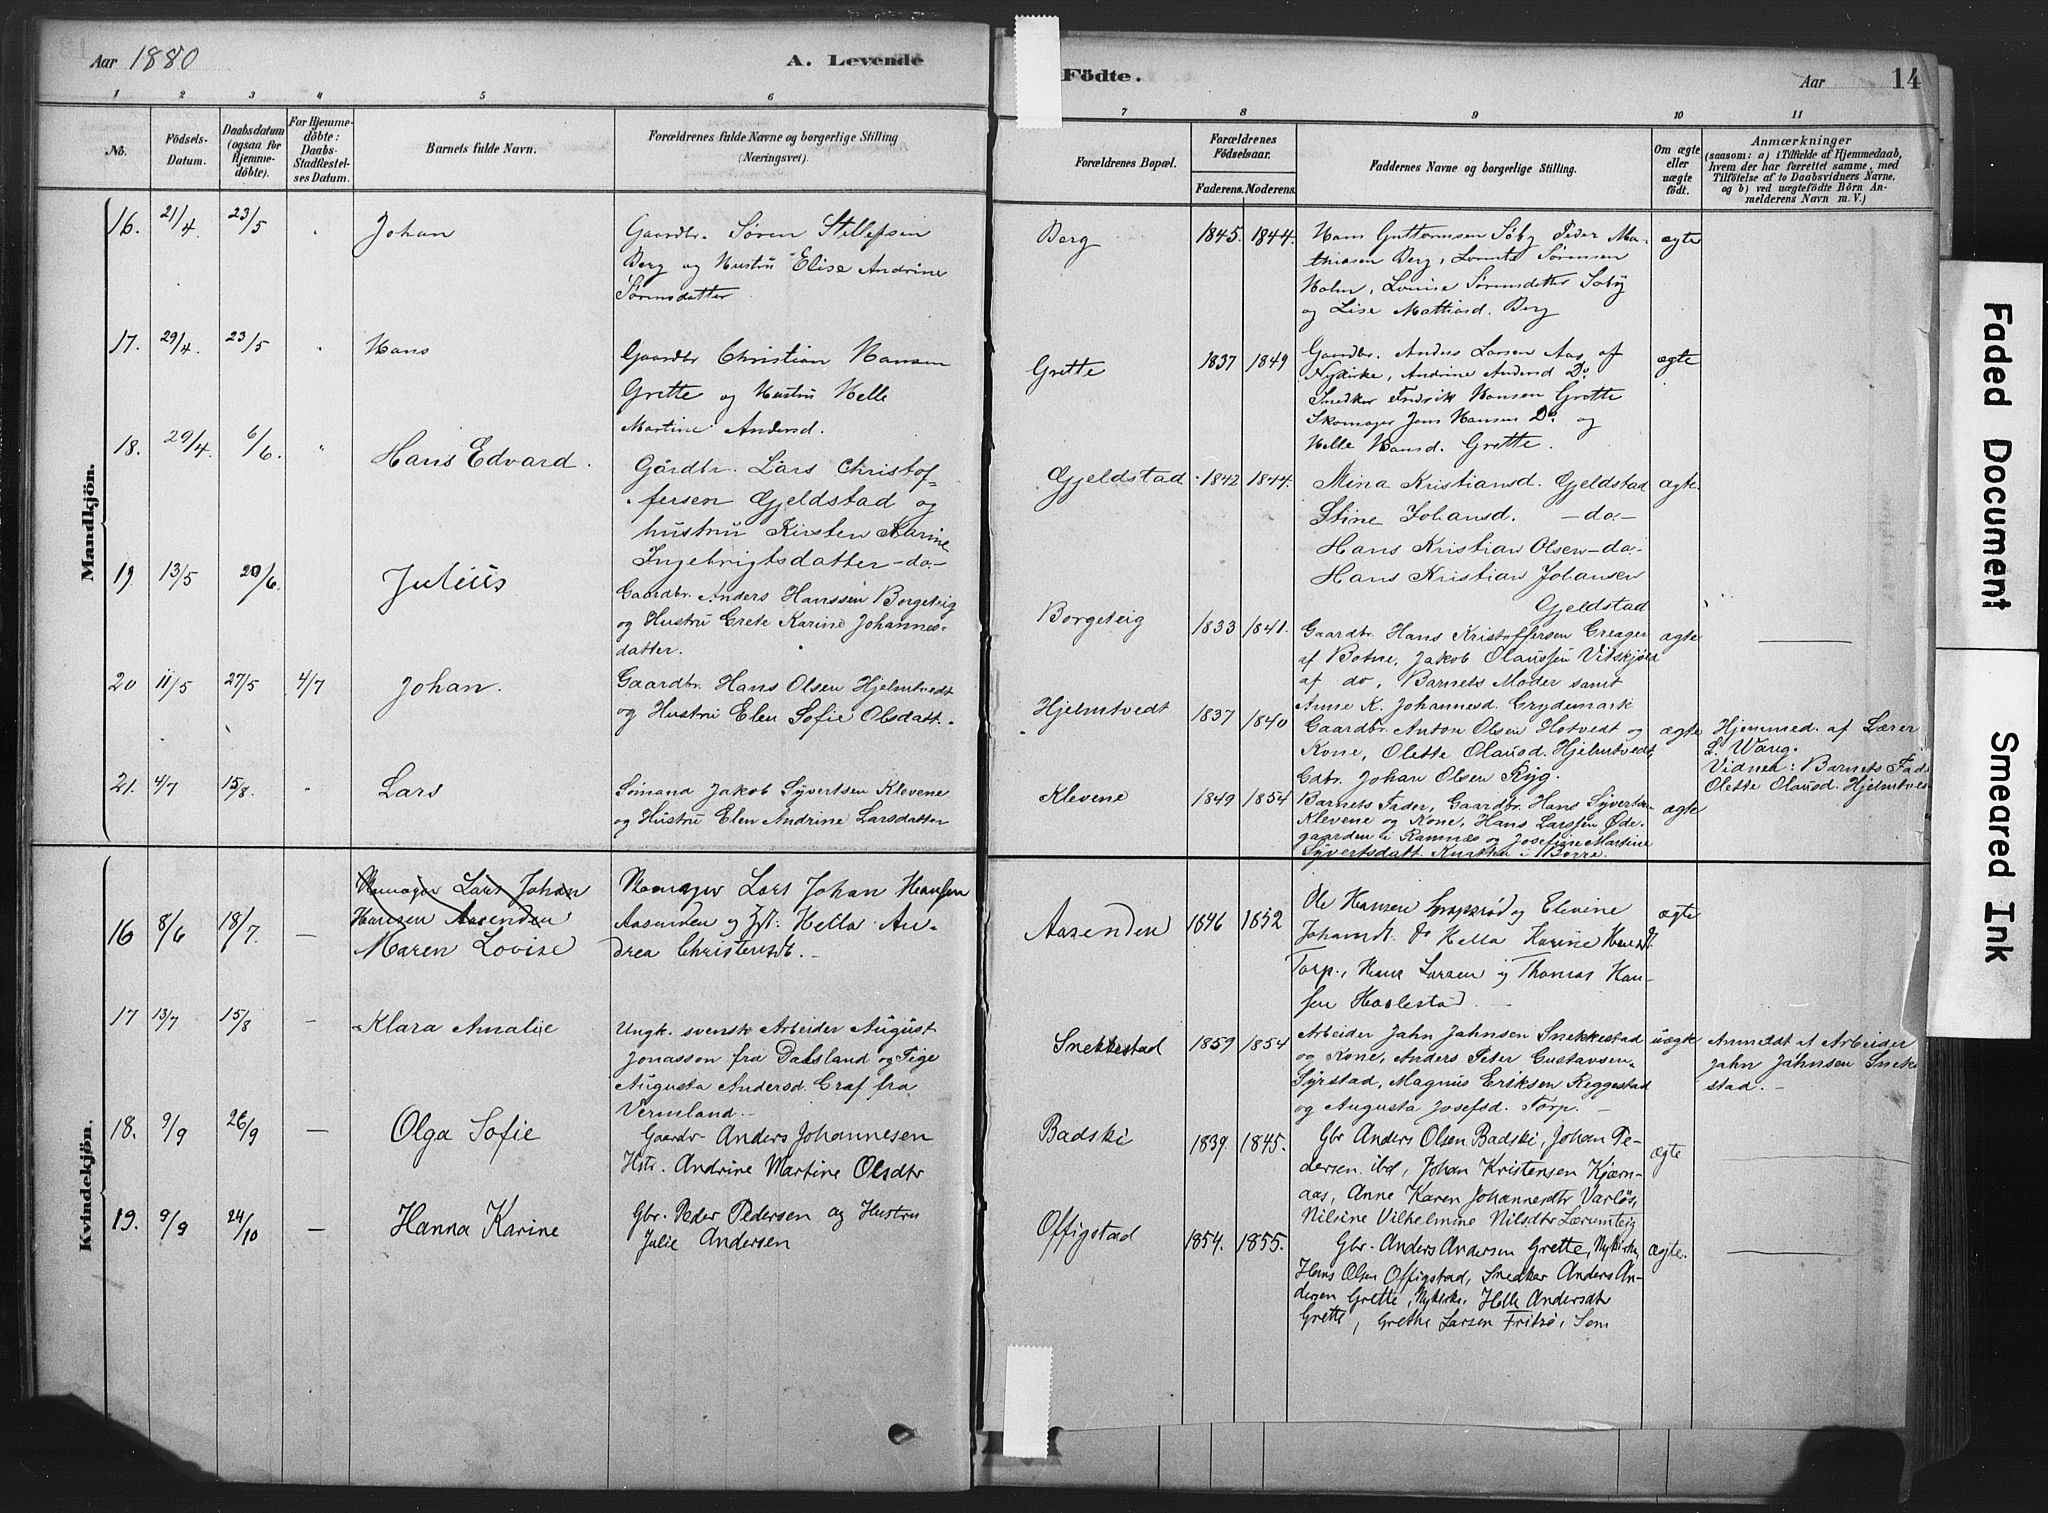 Aar 1880
A. Levende
Födte.
Aar
14
1 2 3 4 5 6 7 8 9 10 11
No.
Födsels-
Datum.
Daabsdatum
(ogsaa for
Hjemme-
döbte).
For Hjemme-
döbte:
Daabs-
Stadfæstel-
ses Datum.
Barnets fulde Navn.
Forældrenes fulde Navne og borgerlige Stilling
(Næringsvei).
Forældrenes Bopæl.
Forældrenes
Födselsaar.
Faderens. Moderens.
Faddernes Navne og borgerlige Stilling.
Om ægte
eller
uægte
födt.
Anmærkninger
(saasom: a) i Tilfælde af Hjemmedaab,
hvem der har forrettet samme, med
Tilföielse af to Daabsvidners Navne,
og b) ved uægtefödte Börn An-
melderens Navn m. V.)
Mandkjön.
16. 21/4. 23/5 Johan
Gaardbr. Sören Stillefsen
Berg og Hustru Elise Andrine
Sörensdatter
Berg 1845. 1844.
Hans Guttormsen Söby Peder Ma-
thiasen Berg, Sörensen
Holm, Louise Sörensdatter Söby
og Lise Mathiasd. Berg
ægte
17. 29/4. 23/5 Hans
Gaardbr Christian Hansen
Grette og Hustru Helle
Martine Andersd.
Grette 1837 1849
Gaardbr. Anders Larsen Aas af
Nykirke, Andrine Andersd Do.
Snedker Fredrik Hansen Grette
Skomager Jens Hansen Do og
Helle Hansd. Grette.
ægte
18. 29/4. 6/6. Hans Edvard.
Gårdbr. Lars Christof-
fersen Gjeldstad og
hustru Kirsten Karine
Ingebrigtsdatter -do-
Gjeldstad 1842 1844.
Mina Kristiansd. Gjeldstad
Stine Johansd. -do-
Hans Kristian Olsen -do-
Hans Kristian Johansen
Gjeldstad
ægte.
19 13/5 20/6. Julius
Gaardbr. Anders Hanssen Borgeteig
og Hustru Grete Karine Johannes-
datter.
Borgeteig 1833 1841.
Gaardbr. Hans Kristoffersen Greager
af Botne, Jakob Olaussen Vitskjøld
af do, Barnets Moder samt
Anne K. Johannesd. Grydemark
ægte
20 11/5 27/5 4/7 Johan.
Gaardbr. Hans Olsen Hjelmtvedt
og Hustru Elen Sofie Olsdatt.
Hjelmtvedt 1837 1840
Gaardbr. Anton Olsen Hotvedt og
Kone, Olette Olausd. Hjelmtvedt,
Gdbr. Johan Olsen Ryg.
ægte
Hjemmed. af Lærer
L. Wang.
Vidner: Barnets Fad
Olette Olausd. Hjelmtve
21. 4/7 15/8. Lars
Sömand Jakob Syvertsen Klevene
og Hustru Elen Andrine Larsdatter
Klevene 1849 1854
Barnets Fader, Gaardbr. Hans Syvertsen
Klevene og Kone, Hans Larssen Øde-
gaarden i Ramnæs og Josefine Martine
Syvertsdatt. i Borre.
ægte
Kvindekjön.
Skomager Lars Johan
Hansen Aasenden
16 8/6 18/7. — Maren Lovise
Skomager Lars Johan Hansen
Aasenden og Hst. Hella An-
drea Christensdt. —
Aasenden 1846 1852
Ole Hansen og Elevine
Johansdt. Do Hella Karine Hansdt.
Torp., Hans Larsen og Thomas Han-
sen Haslestad. —
ægte
17 13/7 15/8 — Klara Amalie
Ungk. svensk Arbeider August
Jonasson fra Dalsland og Pige
Augusta Andersd. Graf fra
Vermland. —
Snekkestad 1859 1854
Arbeider Jahn Jahnsen Snekkestad
og Kone, Anders Peter Gustavsen
Syrstad, Magnus Eriksen Reggestad
og Augusta Josefsd. Torp. —
uægte
Anmeldt af Arbeider
Jahn Jahnsen Snekke
stad. —
18. 9/9 26/9 — Olga Sofie
Gaardbr Anders Johannesen
Hstr. Andrine Martine Olsdtr
Badski 1839. 1845.
Gbr Anders Olsen Badski, Johan Pe-
dersen ibd, Johan Kristensen Kjærn-
aas, Anne Karen Johannesdtr Varløs,
Nilsine Vilhelmine Nilsdtr Lærumteig
ægte
19. 9/9 24/10 — Hanna Karine
Gbr. Peder Pedersen og Hustru
Julie Andersen
Offigstad 1854. 1855.
Gbr. Anders Andersen Grette, Nykirke,
Hans Olsen Offigstad, Snedker Anders An-
dersen Grette, Nykirke, Helle Andersdtr
Grette, Grethe Larsen Fritsö, Sem
ægte.
Faded Document
Smeared Ink